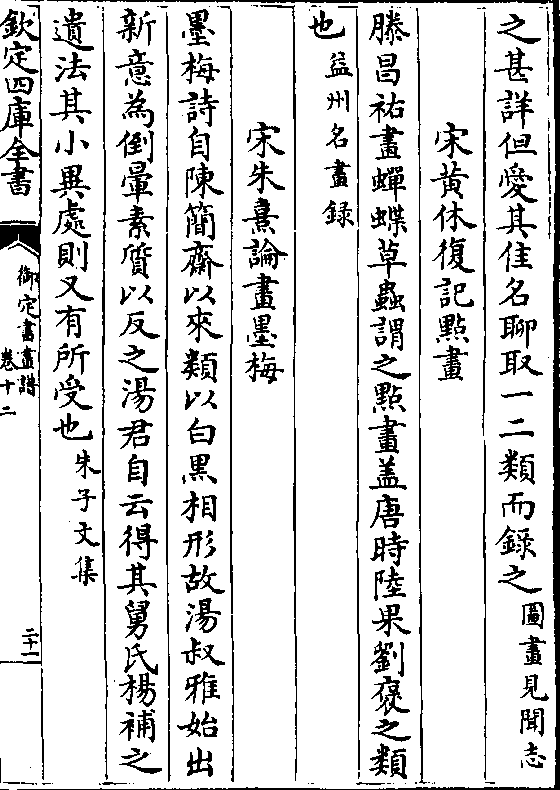 之甚詳但愛其佳名聊取一二類而錄之圖畫見聞志
宋黃休復記點畫
滕昌祐畫蟬蝶草蟲謂之點畫盖唐時陸果劉褒之類
也益州名畫録
宋朱熹論畫墨梅
墨梅詩自陳簡齋以來類以白黒相形故湯叔雅始出
新意為倒暈素質以反之湯君自云得其舅氏楊補之
遺法其小異處則又有所受也朱子文集
欽定四庫全書
御定書畫譜
卷十二
二十一